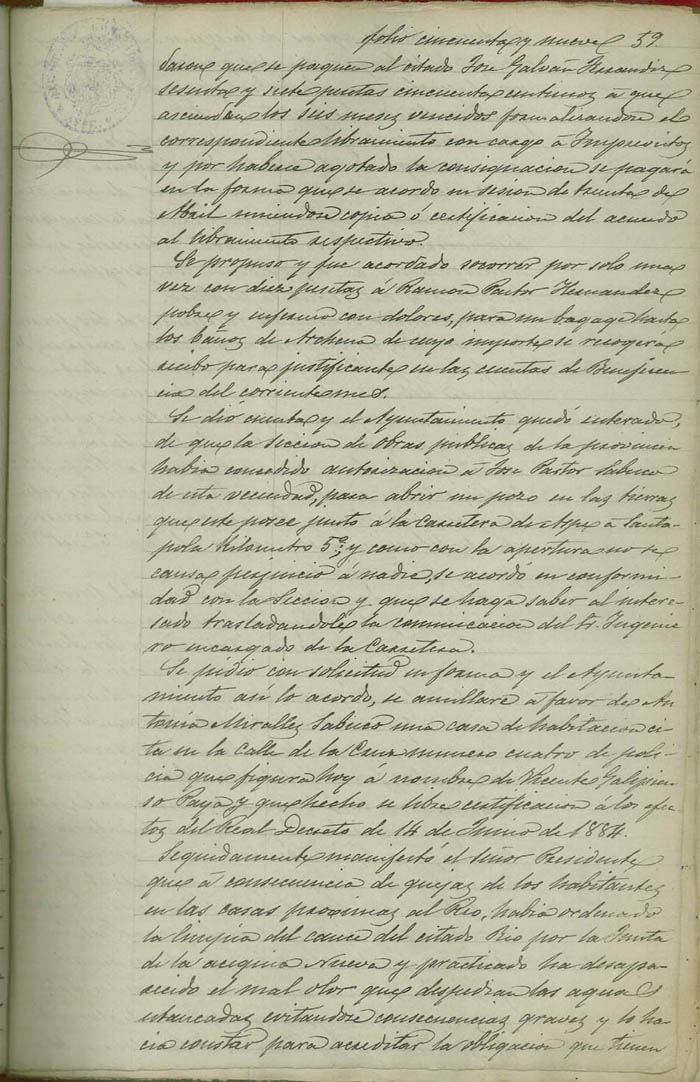 folio cincuenta y nueve 59.
daron que se paguen al citado Jose Galván Hernandiz
sesenta y siete pesetas cincuenta centimos á que
ascienden los seis meses vencidos formalizandose el
correspondiente libramiento con cargo á Imprevistos
y por haberse agotado la consignacion se pagará
en la forma que se acordo en sesion de treinta de
Abril uniendose copia ó certificacion del acuerdo
al libramiento respectivo.
Se propuso y fue acordado socorrer por solo una
vez con diez pesetas á Ramon Pastor Hernandez
pobre y enfermo con dolores, para un bagage hasta
los baños de Archena de cuyo importe se recogerá
recibo para justificante en las cuentas de Beneficen
cia del corriente mes.
Se dió cuenta y el Ayuntamiento quedó enterado,
de que la Seccion de obras publicas de la provincia
habia concedido autorizacion á Jose Pastor Sabuco
de esta vecindad, para abrir un pozo en las tierras
que este posee junto á la Carretera de Aspe á Santa-
pola Kilometro 5º; y como con la apertura no se
causa perjuicio á nadie, se acordó en conformi
dad con la Seccion y que se haga saber al intere-
sado trasladandole la comunicacion del Sr. Ingenie
ro encargado de la Carretera.
Se pidio con solicitud en forma y el Ayunta-
miento asi lo acordo, se amillare á favor de An
tonia Miralles Sabuco una casa de habitacion ci
ta en la calle de la Cruz numero cuatro de poli-
cia que figura hoy á nombre de Vicente Galipien
so Payá y que hecho se libre certificacion á los efec
tos del Real Decreto de 14 de Junio de 1884.
Seguidamente manifestó el Señor Presidente
que á consecuencia de quejas de los habitantes
en las casas proximas al Rio, habia ordenado
la limpia del cauce del citado Rio por la Junta
de la acequia Nueva y practicado ha desapa-
recido el mal olor que despedian las aguas
estancadas evitandose consecuencias graves y lo ha
cia constar para acreditar la obligacion que tienen